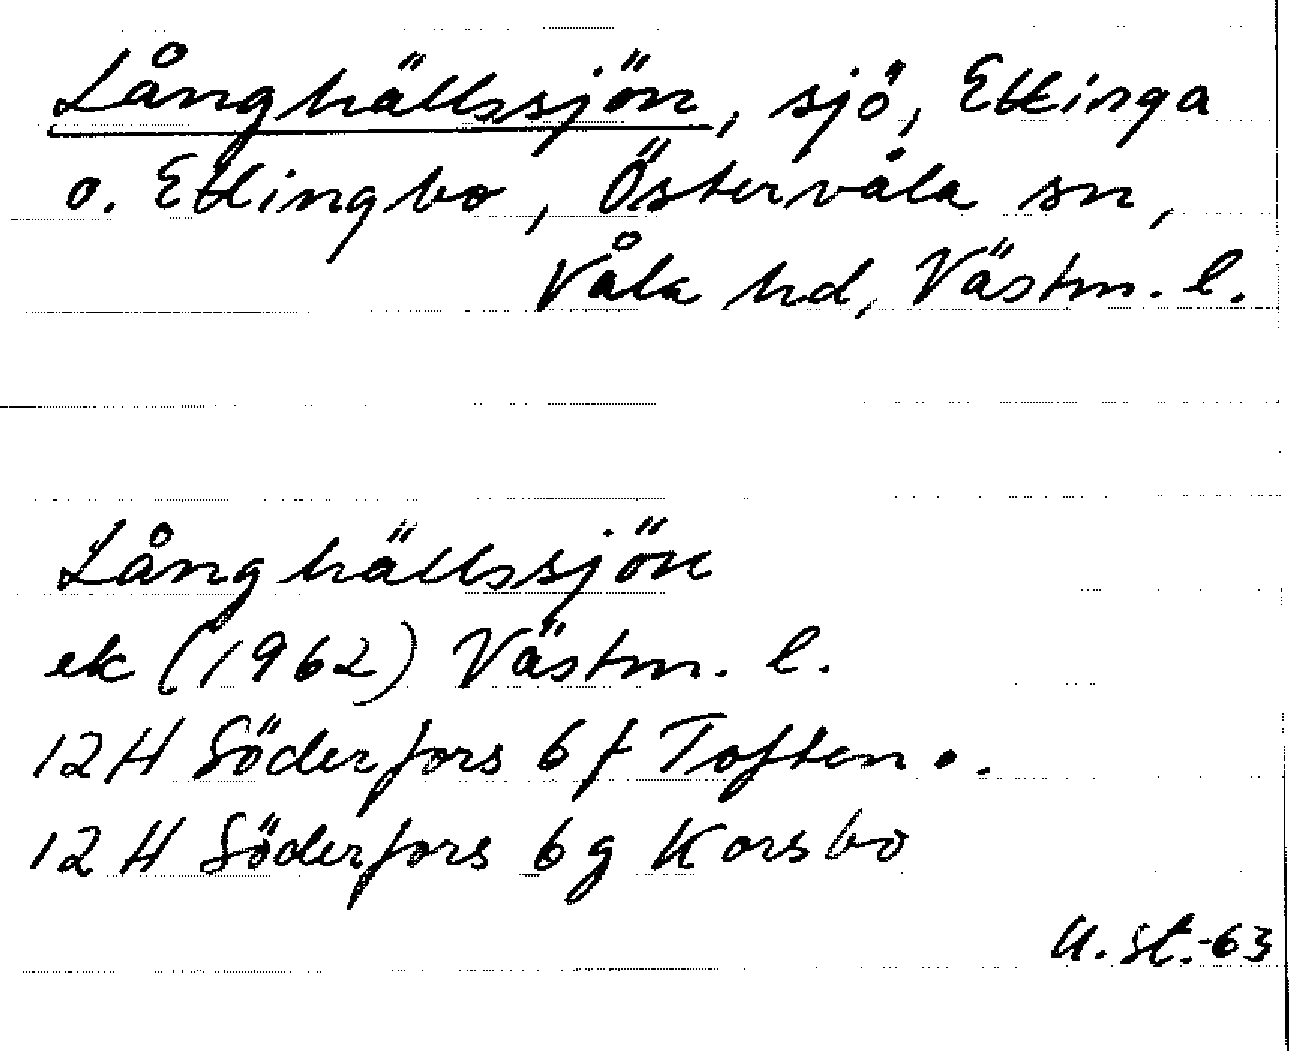 Långhällssjön, sjö, Ettinga
o. Ettingbo, Östervåla sn,
Våla hd, Västm. l.
Långhällssjön
ek (1962) Västm. l.
12H Söderfors 6f Toften o.
12H Söderfors 6g Korsbo
U.St.-63